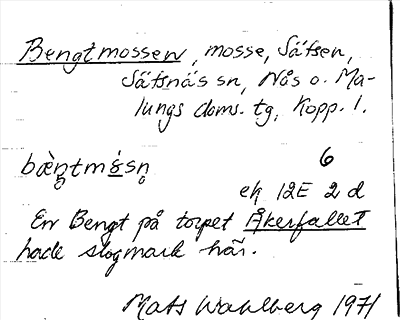 Bengtmossen, mosse, Säfsen,
Säfsnäs sn, Nås o. Ma-
lungs doms. tg, Kopp. l.
bæ̀n̥tmɞ́sn̥
6
ek 12E 2 d
En Bengt på torpet Åkerfallet
hade slogmark här.
Mats Wahlberg 1971